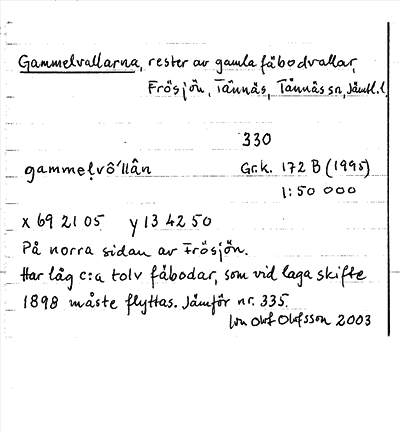 Gammelvallarna, rester av gamla fäbodvallar,
Frösjön, Tännäs, Tännäs sn, Jämtl. l.
330
gammeḷvô´llân Gr.k. 172 B (1995)
1:50 000
x 69 21 05 y 13 42 50
På norra sidan av Frösjön.
Här låg c:a tolv fäbodar, som vid laga skifte
1898 måste flyttas. Jämför nr. 335.
Olof Olofsson 2003